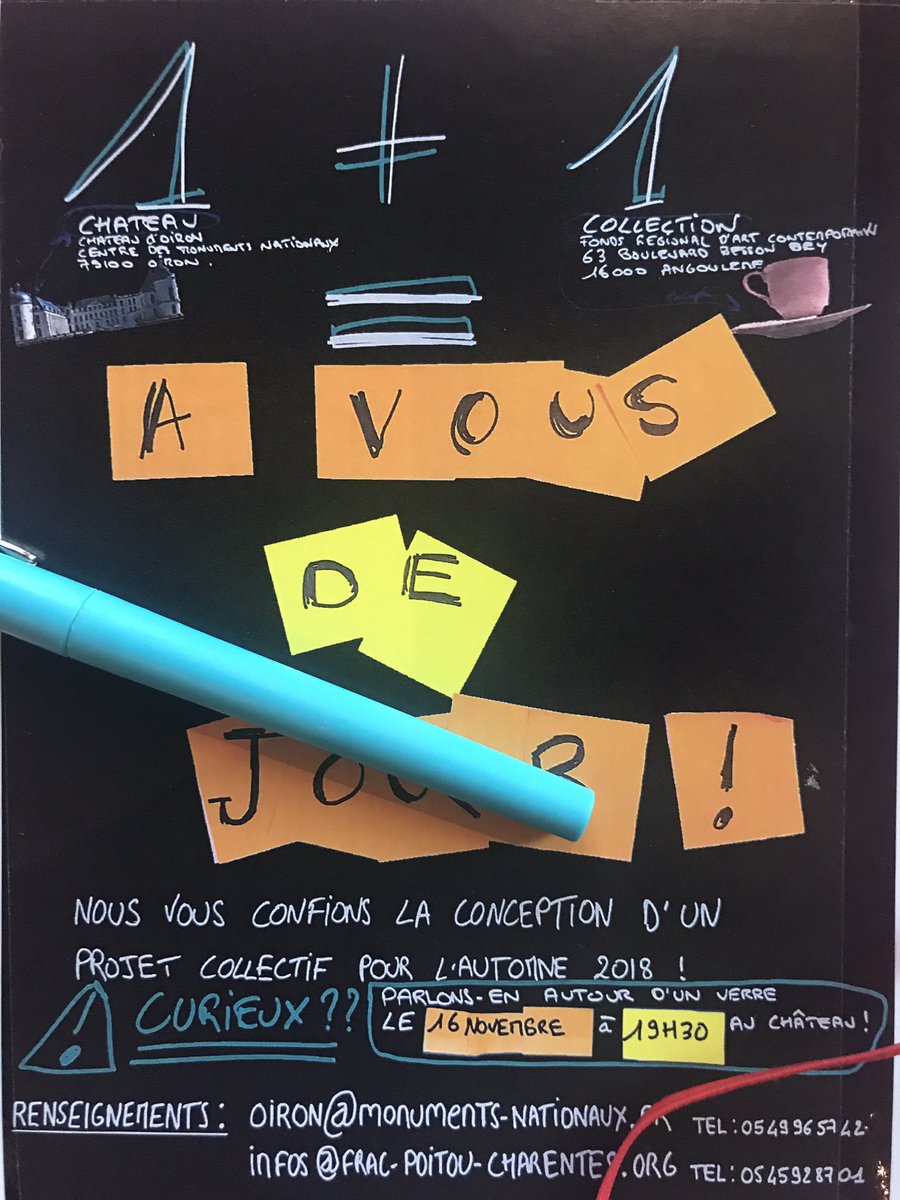 1 + 1
CHATEAU
CHATEAU D'OIRON
CENTRE DES MONUMENTS NATIONAUX
79100 OIRON.
COLLECTION
FONDS REGIONAL D'ART CONTEMPORAIN
63 BOULEVARD BESSON BEY
16000 ANGOULEME
=
A VOUS
DE
JOUER !
NOUS VOUS CONFIONS LA CONCEPTION D'UN
PROJET COLLECTIF POUR L'AUTOMNE 2018 !
! CURIEUX ??
PARLONS-EN AUTOUR D'UN VERRE
LE 16 NOVEMBRE à 19H30 AU CHÂTEAU !
RENSEIGNEMENTS : OIRON@MONUMENTS-NATIONAUX. TEL : 0549965742
INFOS@FRAC-POITOU-CHARENTES.ORG TEL : 0545928701